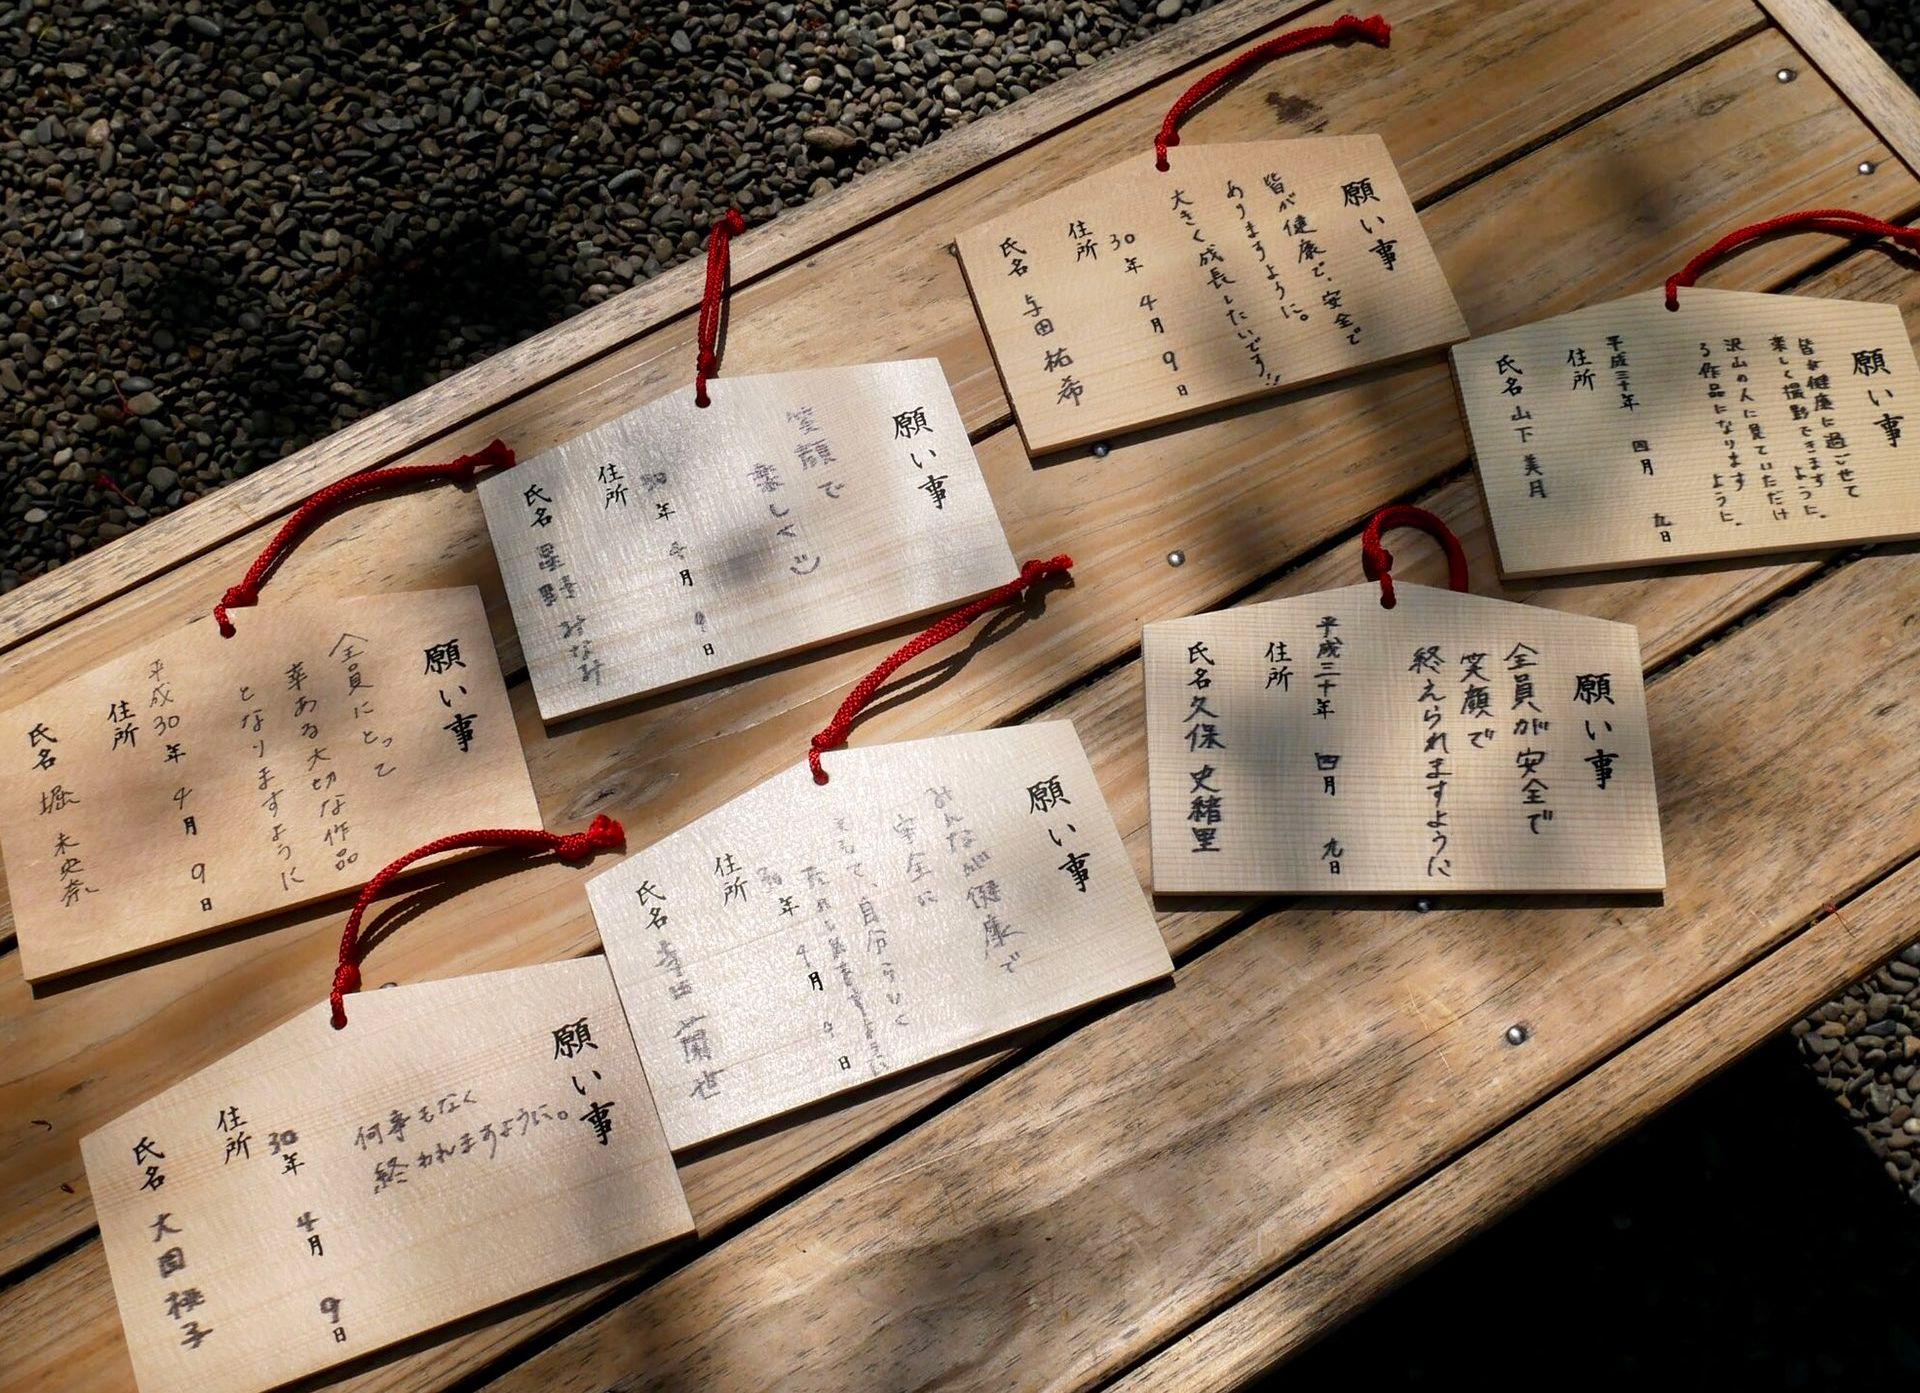 願い事
皆が健康で、安全で
ありますように。
大きく成長したいです!!
30年 4月 9日
住所
氏名 与田 祐希
願い事
皆が健康に過ごせて
楽しく撮影できますように。
沢山の人に見ていただけ
る作品になりますように。
平成三十年 四月 九日
住所
氏名 山下 美月
願い事
笑顔で
楽しく
30年 4月 9日
住所
氏名 星野 みなみ
願い事
全員が安全で
笑顔で
終えられますように
平成三十年 四月 九日
住所
氏名 久保 史緒里
願い事
全員にとって
幸ある大切な作品
となりますように
平成30年 4月 9日
住所
氏名 堀 未央奈
願い事
みんなが健康で
安全に
そして、自分らしく
ように
30年 4月 9日
住所
氏名 寺田 蘭世
願い事
何事もなく
終われますように。
30年 4月 9日
住所
氏名 大園 桃子